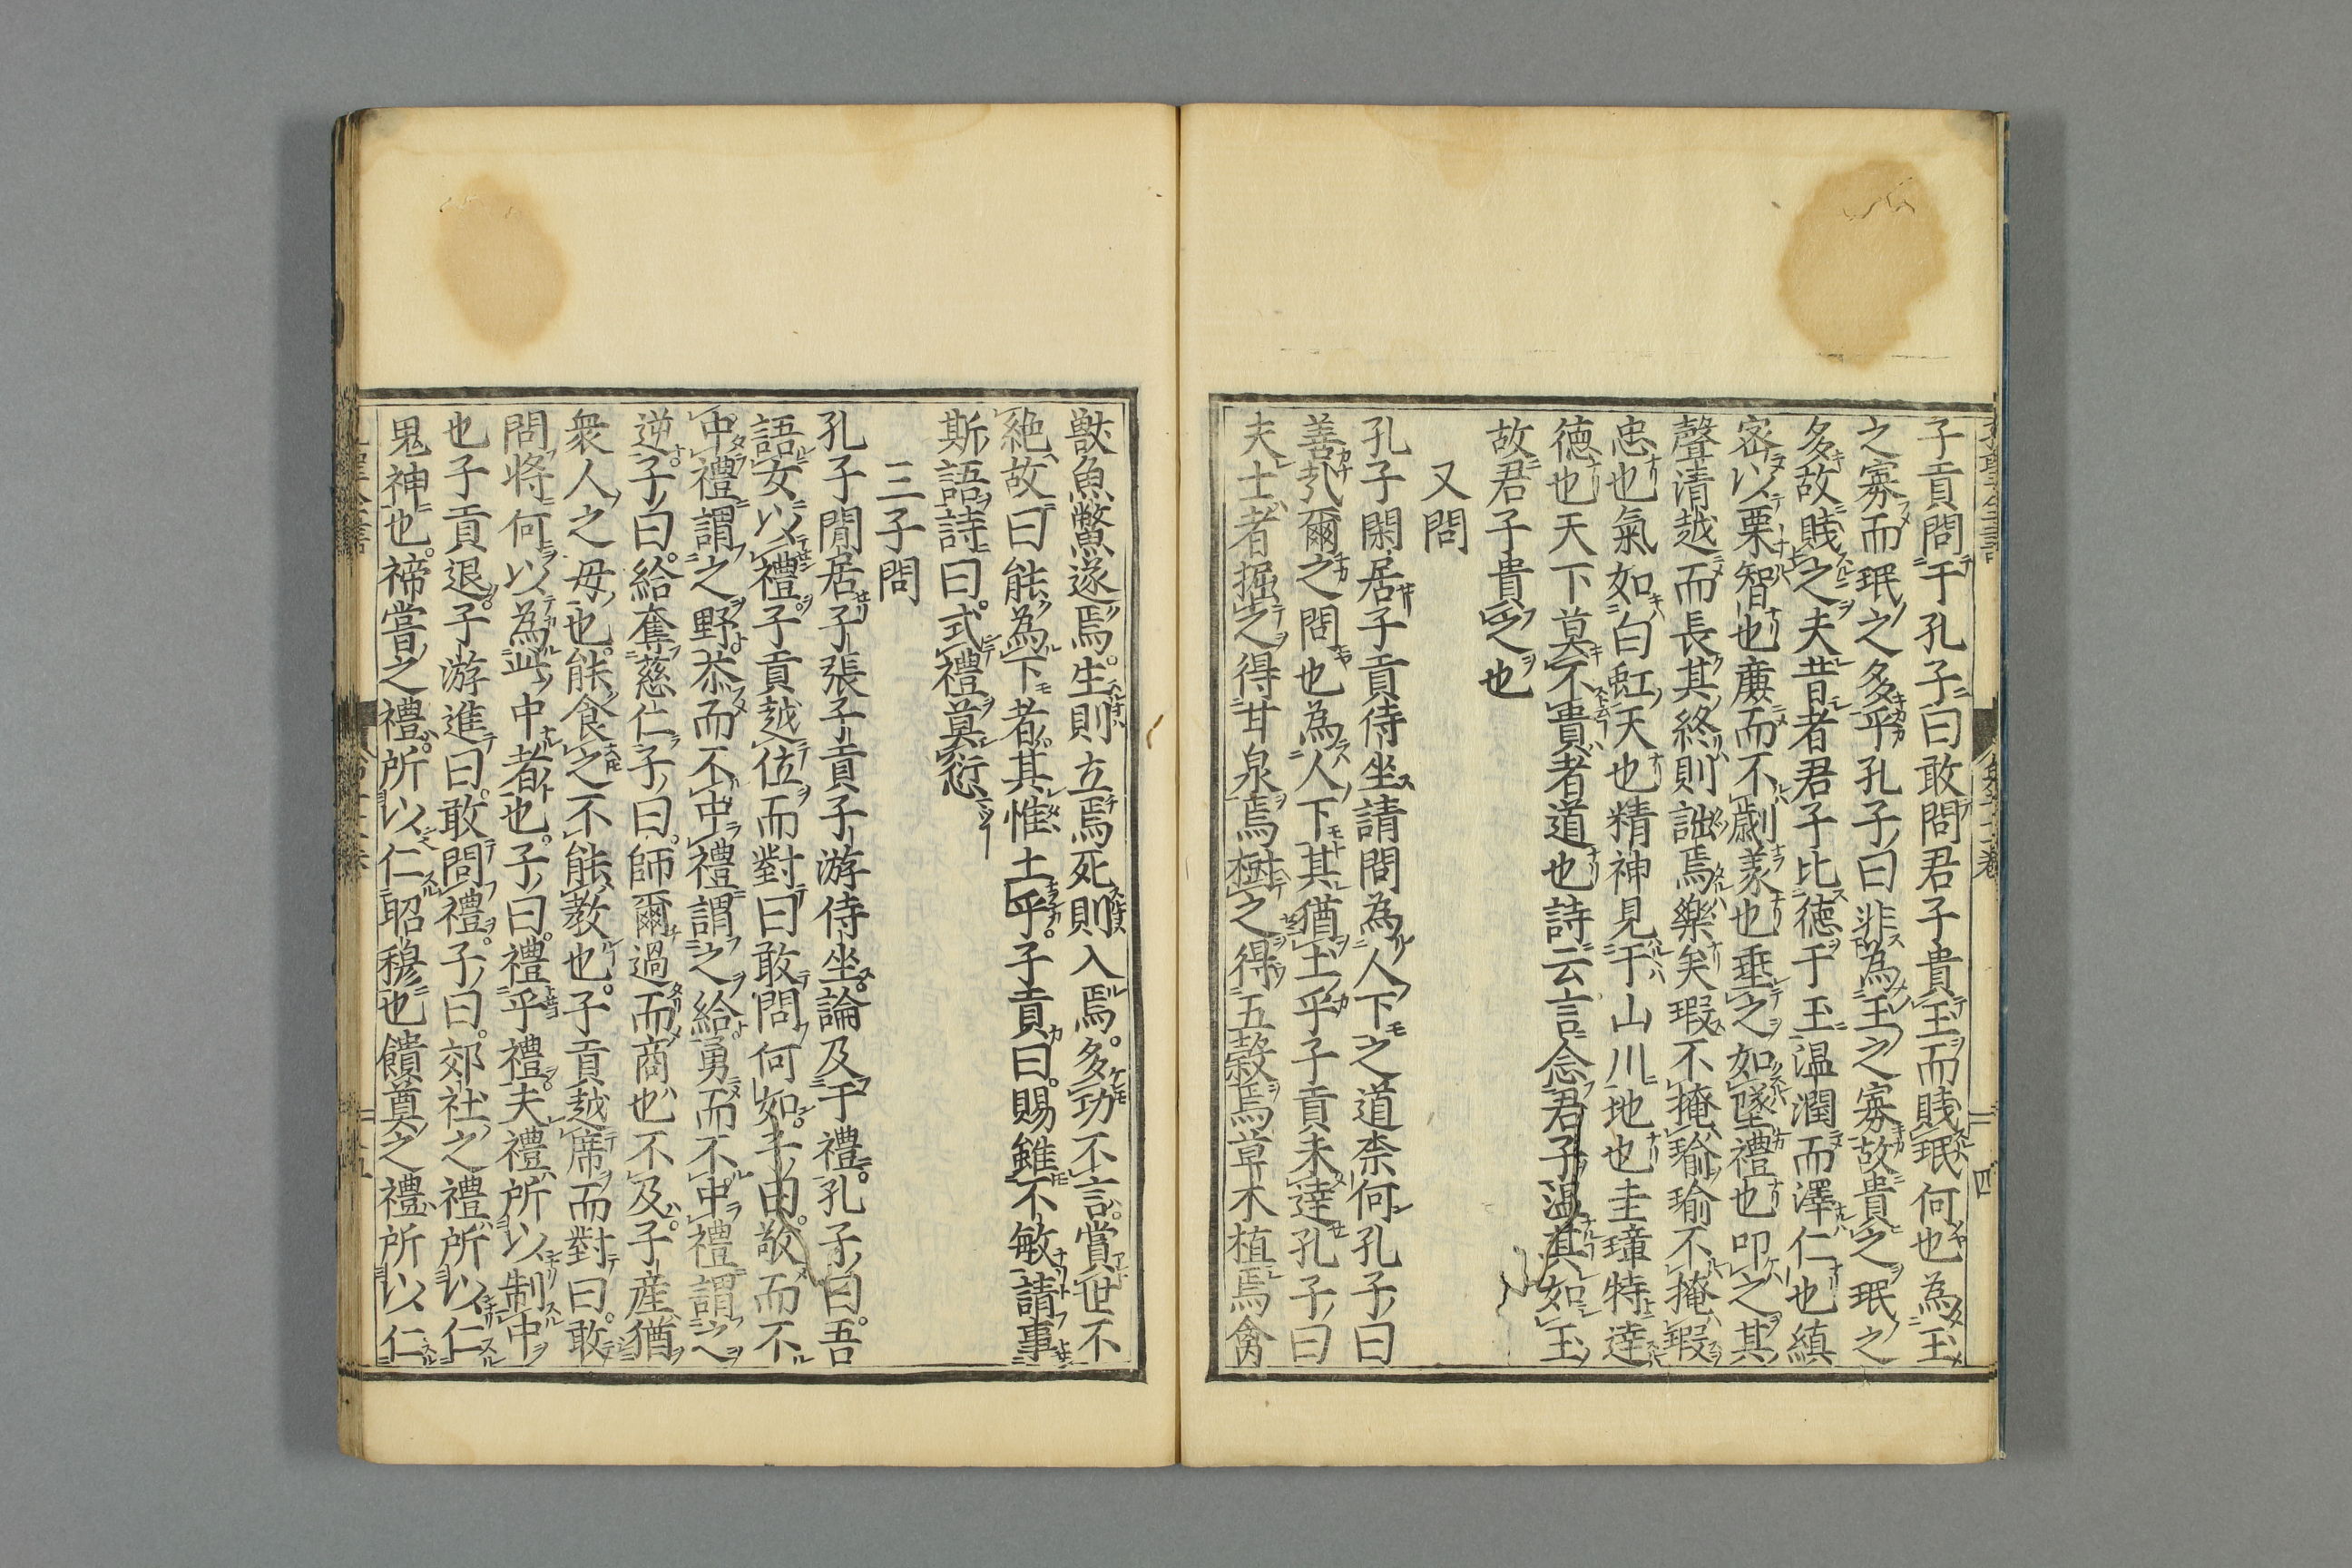 子貢問于孔子曰敢問君子貴玉而賎珉何也為玉
之寡而珉之多乎孔子曰非為玉之寡故貴之珉之
多故賎之夫昔者君子比徳于玉温潤而澤仁也縝
宻以栗智也廉而不劌義也垂之如墜禮也叩之其
聲清越而長其終則詘焉樂矣瑕不掩瑜瑜不掩瑕
忠也氣如白虹天也精神見于山川地也圭璋特達
徳也天下莫不貴者道也詩云言念君子温其如玉
故君子貴之也
又問
孔子閑居子貢侍坐請問為人下之道柰何孔子曰
善哉爾之問也為人下其猶土乎子貢未達孔子曰
夫土者掘之得甘泉焉樹之得五穀焉草木植焉禽
獸魚鱉遂焉生則立焉死則入焉多功不言賞世不
絶故曰能為下者其惟土乎子貢曰賜雖不敏請事
斯語詩曰式禮莫愆
三子問
孔子閒居子張子貢子游侍坐論及于禮孔子曰吾
語女以禮子貢越位而對曰敢問何如子曰敬而不
中禮謂之野恭而不中禮謂之給勇而不中禮謂之
逆子曰給奪慈仁子曰師爾過而商也不及子産猶
衆人之母也能食之不能教也子貢越席而對曰敢
問將何以為此中者也子曰禮乎禮夫禮所以制中
也子貢退子游進曰敢問禮子曰郊社之禮所以仁
鬼神也禘嘗之禮所以仁昭穆也饋奠之禮所以仁